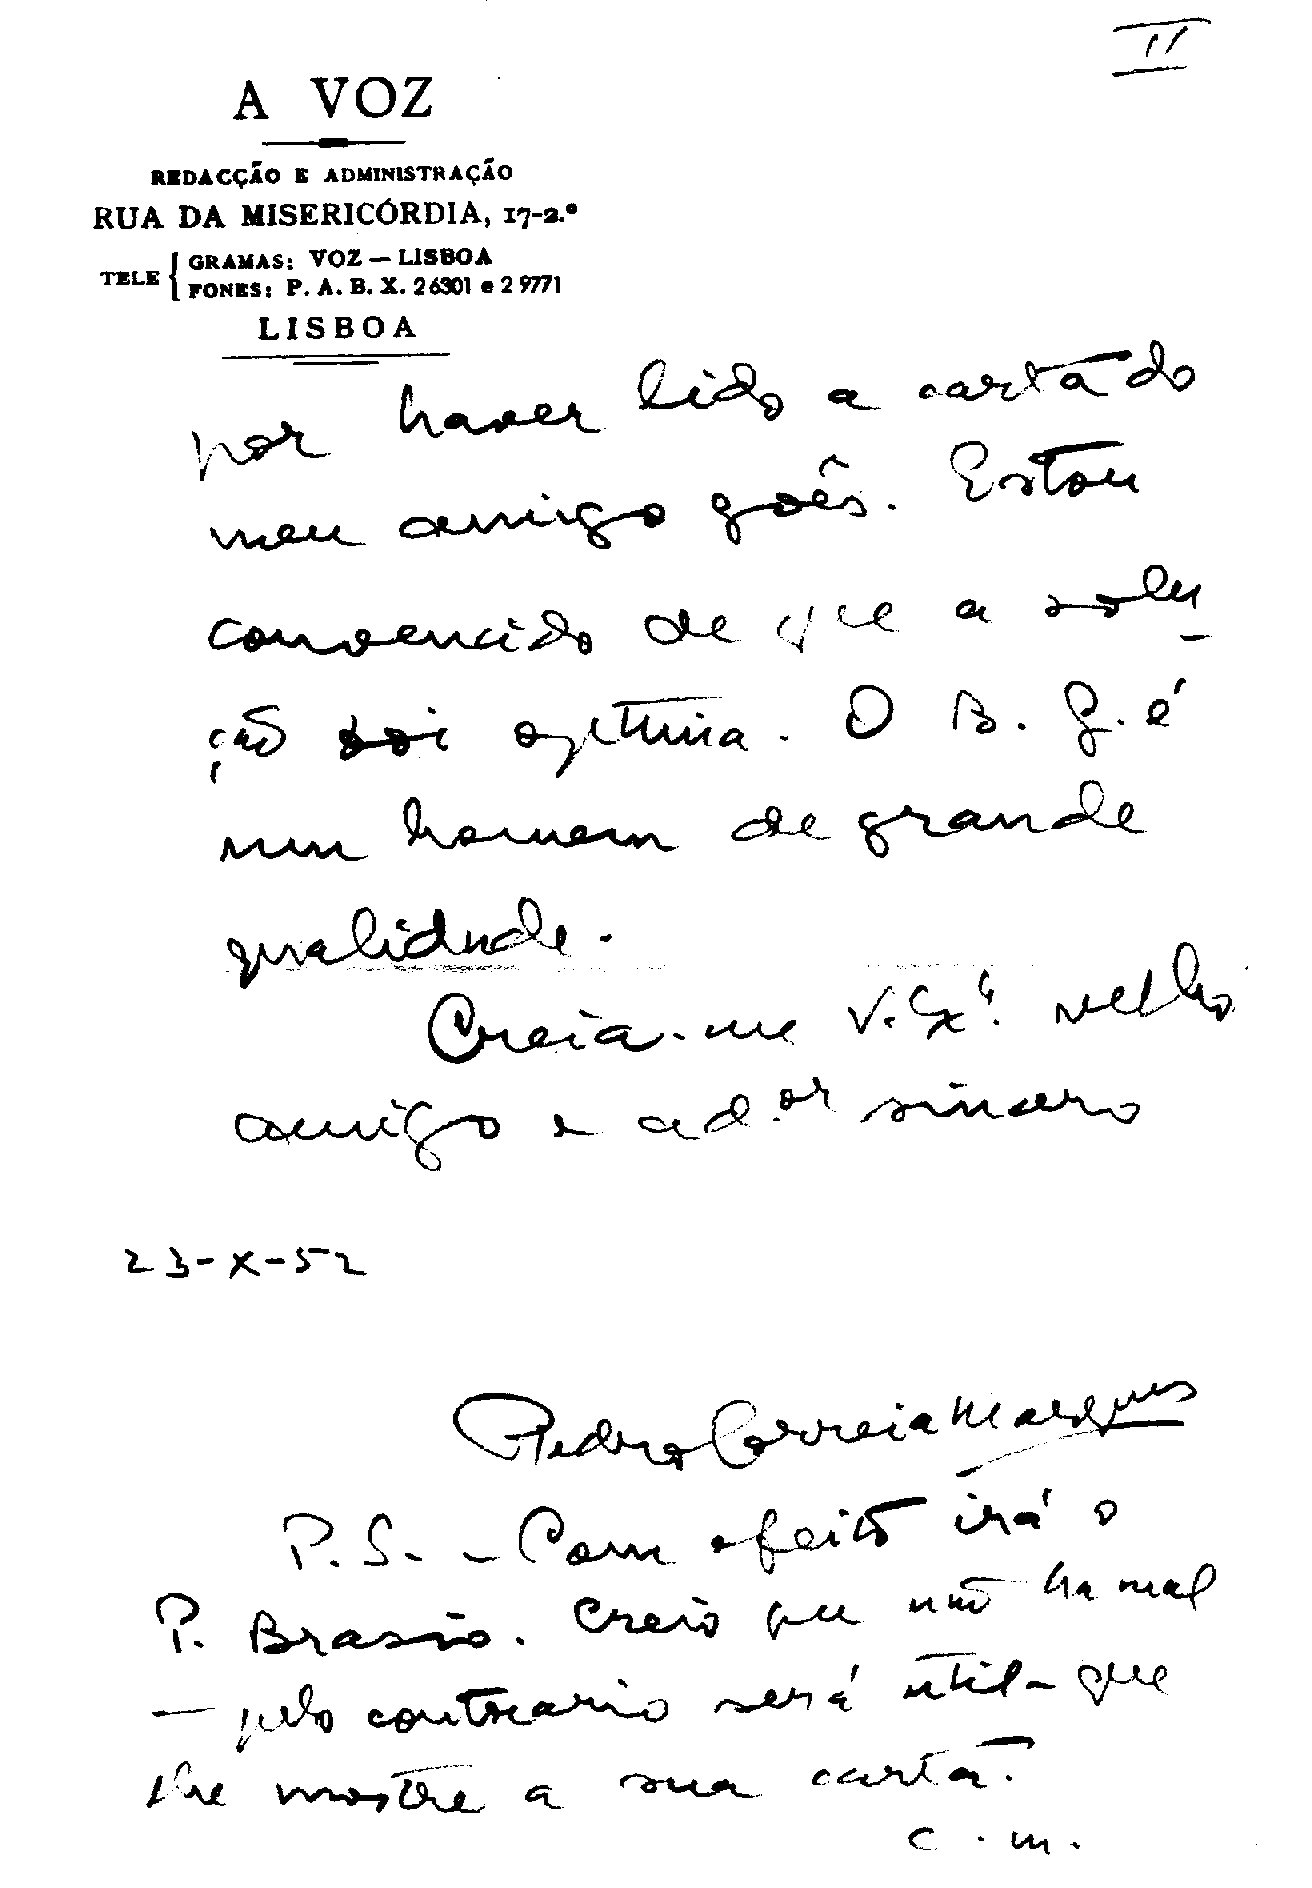 II
A VOZ
REDACÇÃO E ADMINISTRAÇÃO
RUA DA MISERICÓRDIA, 17-2.º
TELE { GRAMAS: VOZ — LISBOA
FONES: P. A. B. X. 26301 e 29771
LISBOA
por haver lido a carta do
meu amigo goês. Estou
convencido de que a solu-
ção foi optima. O B. G. é
um homem de grande
qualidade.
Creia-me V. Exª. velho
amigo e ad.or sincero
23-X-52
Pedro Correia Marques
P.S. - Com efeito irá o
P. Brasio. Creio que não ha mal
— pelo contrario será util - que
lhe mostre a sua carta.
C. M.